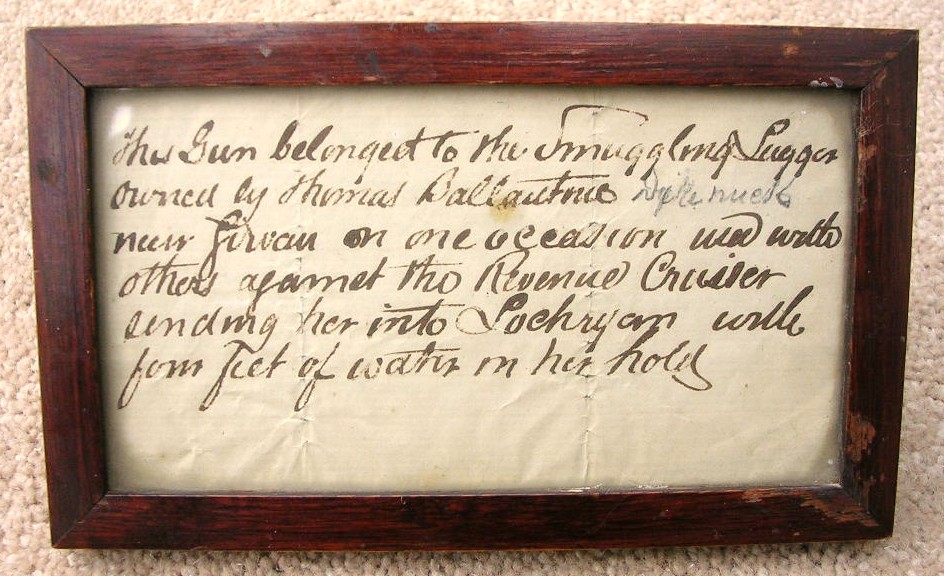 This Gun belonged to the Smuggling Lugger
owned by Thomas Ballantine
near Girvan on one occasion used with
others against the Revenue Cruiser
sending her into Lochryan with
four feet of water in her hold